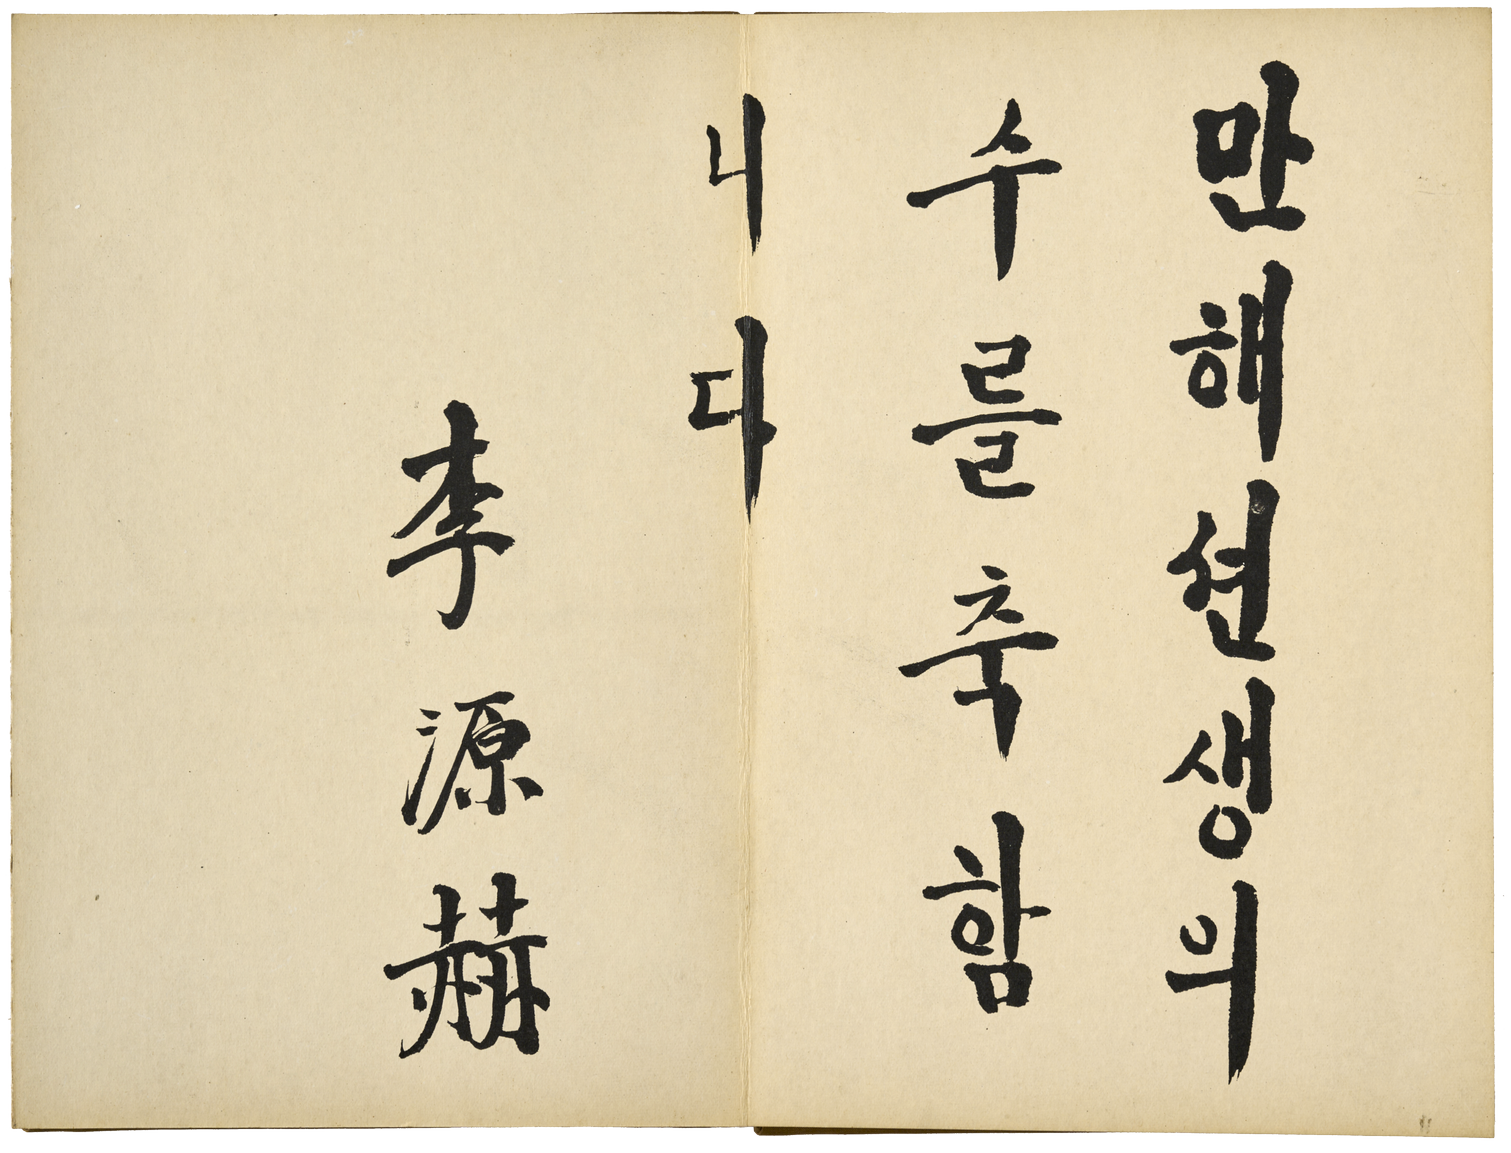 만해션생의
수를축함
니다
李源赫